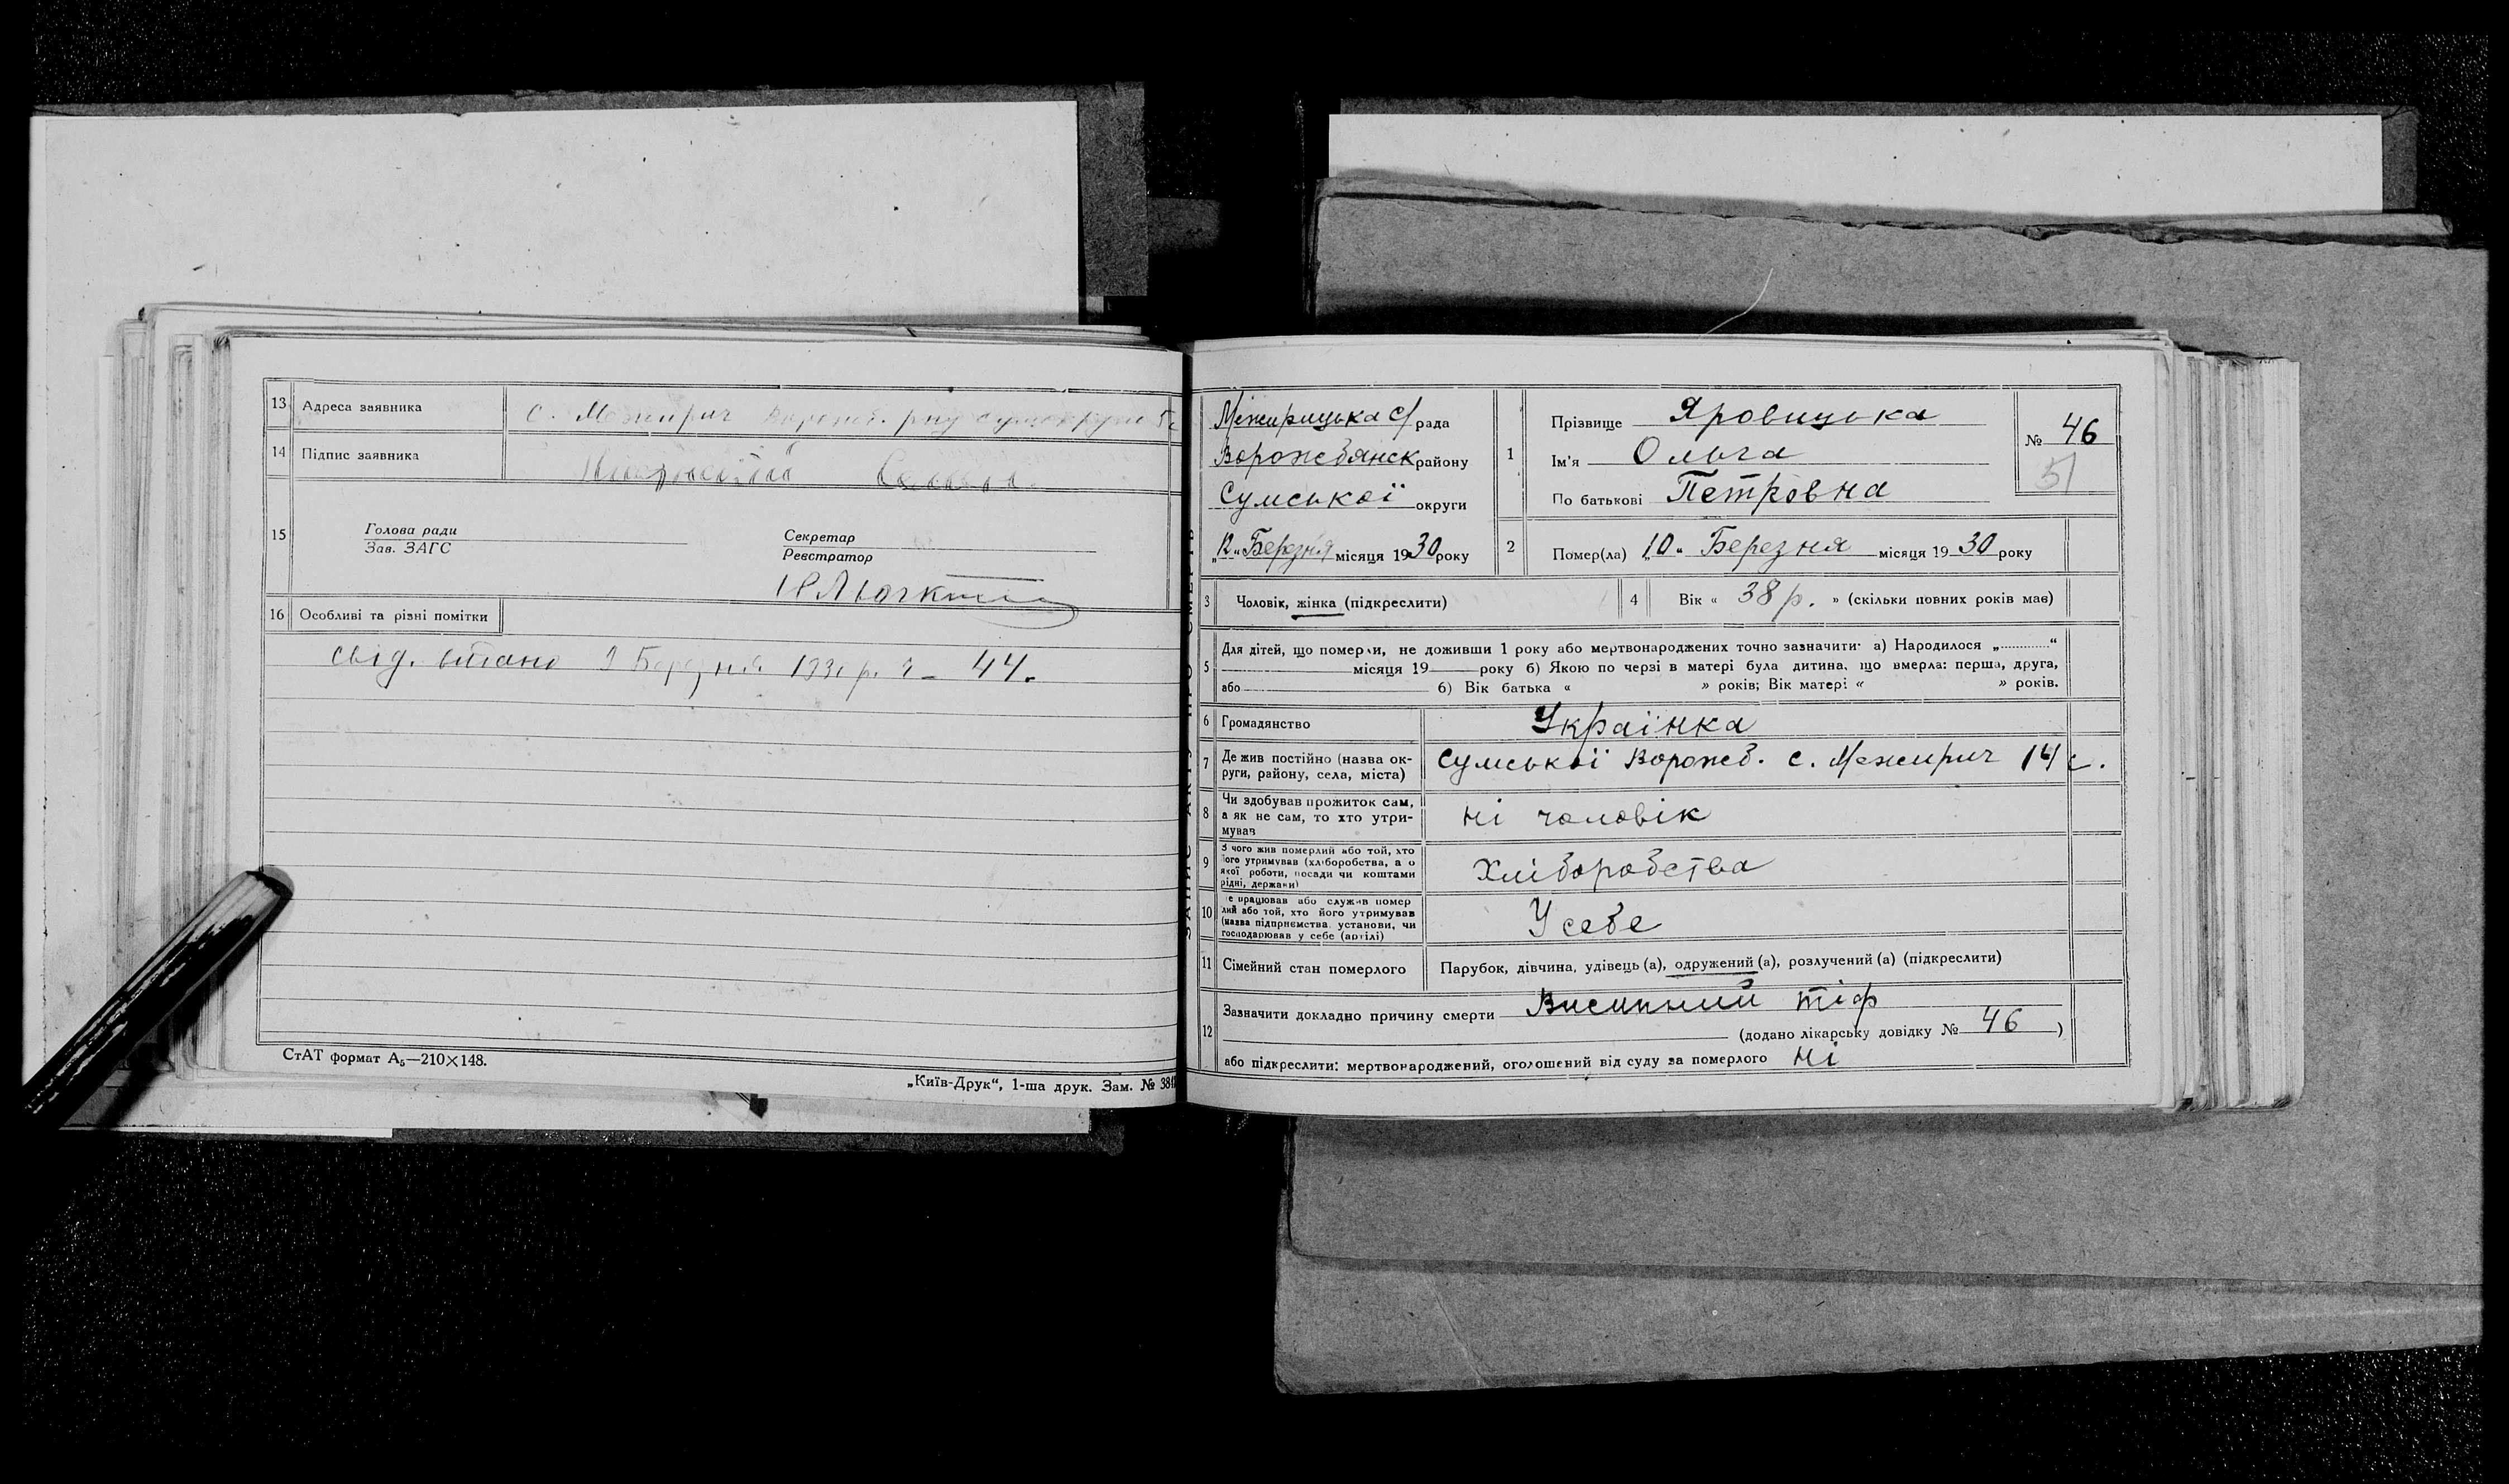 13 Адреса заявника с. Межирич
14 Підпис заявника
15 Голова ради
Зав. ЗАГС
Секретар
Реєстратор
16 Особливі та різні помітки
свід. видано Березня р. 44.
СтАТ формат А₅—210×148.
„Київ-Друк“, 1-ша друк. Зам. №
Межирицька с/рада
Ворожбянск району
Сумської округи
„12„ Березня місяця 1930 року
1 Прізвище Яровицька
Ім'я Ольга
По батькові Петровна
№ 46
51
2 Помер(ла) „10„ Березня місяця 1930 року
3 Чоловік, жінка (підкреслити)
4 Вік « 38 р. » (скільки повних років має)
5 Для дітей, що померли, не доживши 1 року або мертвонароджених точно зазначити: а) Народилося „............“
місяця 19 року б) Якою по черзі в матері була дитина, що вмерла: перша, друга,
або б) Вік батька « » років; Вік матері « » років.
6 Громадянство Українка
7 Де жив постійно (назва ок-
руги, району, села, міста) Сумської Ворожб. с. Межирич 14 с.
8 Чи здобував прожиток сам,
а як не сам, то хто утри-
мував ні чоловік
9 З чого жив померлий або той, хто
його утримував (хліборобства, а о
якої роботи, посади чи коштами
рідні, держави) Хліборобства
10 е працював або служив помер
лий або той, хто його утримував
(назва підприємства, установи, чи
господарював у себе (артілі) У себе
11 Сімейний стан померлого Парубок, дівчина, удівець (а), одружений (а), розлучений (а) (підкреслити)
12 Зазначити докладно причину смерти Висипний тіф
(додано лікарську довідку № 46 )
або підкреслити: мертвонароджений, оголошений від суду за померлого ні